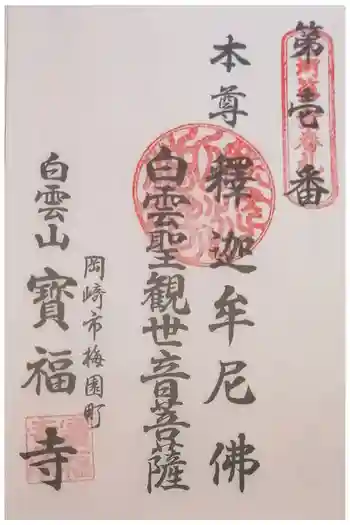 第壱番
本尊 釋迦牟尼佛
白雲聖観世音菩薩
岡崎市梅園町
白雲山 寳福寺